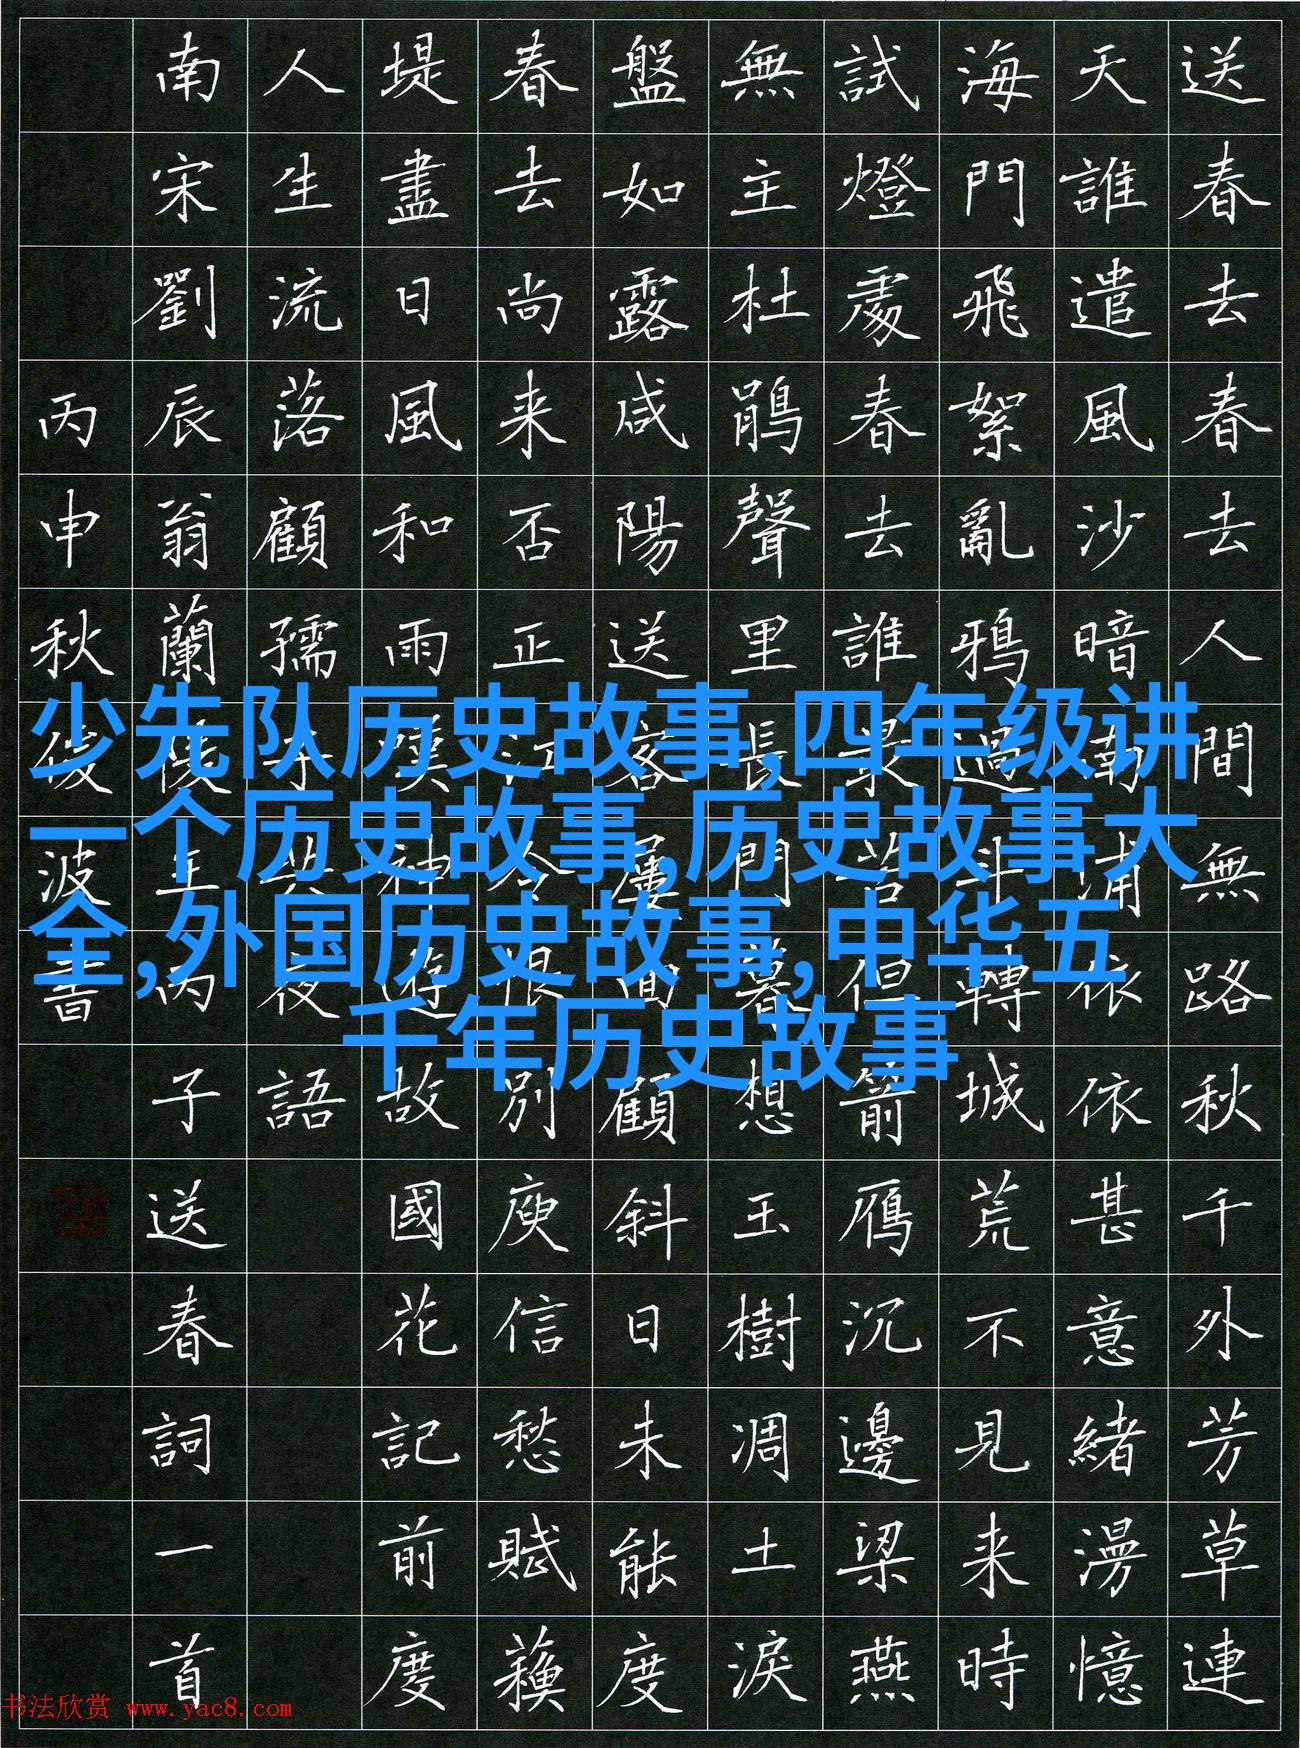 送春去春去人間無路秋千外芳草連
天誰遣風沙暗南浦依依甚意緒漫憶
海門飛絮亂鴉過斗轉城荒不見来時
試燈處春去誰最苦但箭雁沉邊梁燕
無主杜鹃聲里長門暮想玉樹凋土淚
盤如露咸陽送客屢回顧斜日未能度
春去尚来否正江令恨別庾信愁賦蘓
堤盡日風和雨嘆神遊故國花記前度
人生流落顧孺子共夜語
南宋劉辰翁蘭陵王丙子送春詞一首
丙申秋後波書
少先队历史故事,四年级讲
一个历史故事,历史故事大
全,外国历史故事,中华五
千年历史故事
书法欣赏 www.yac8.com